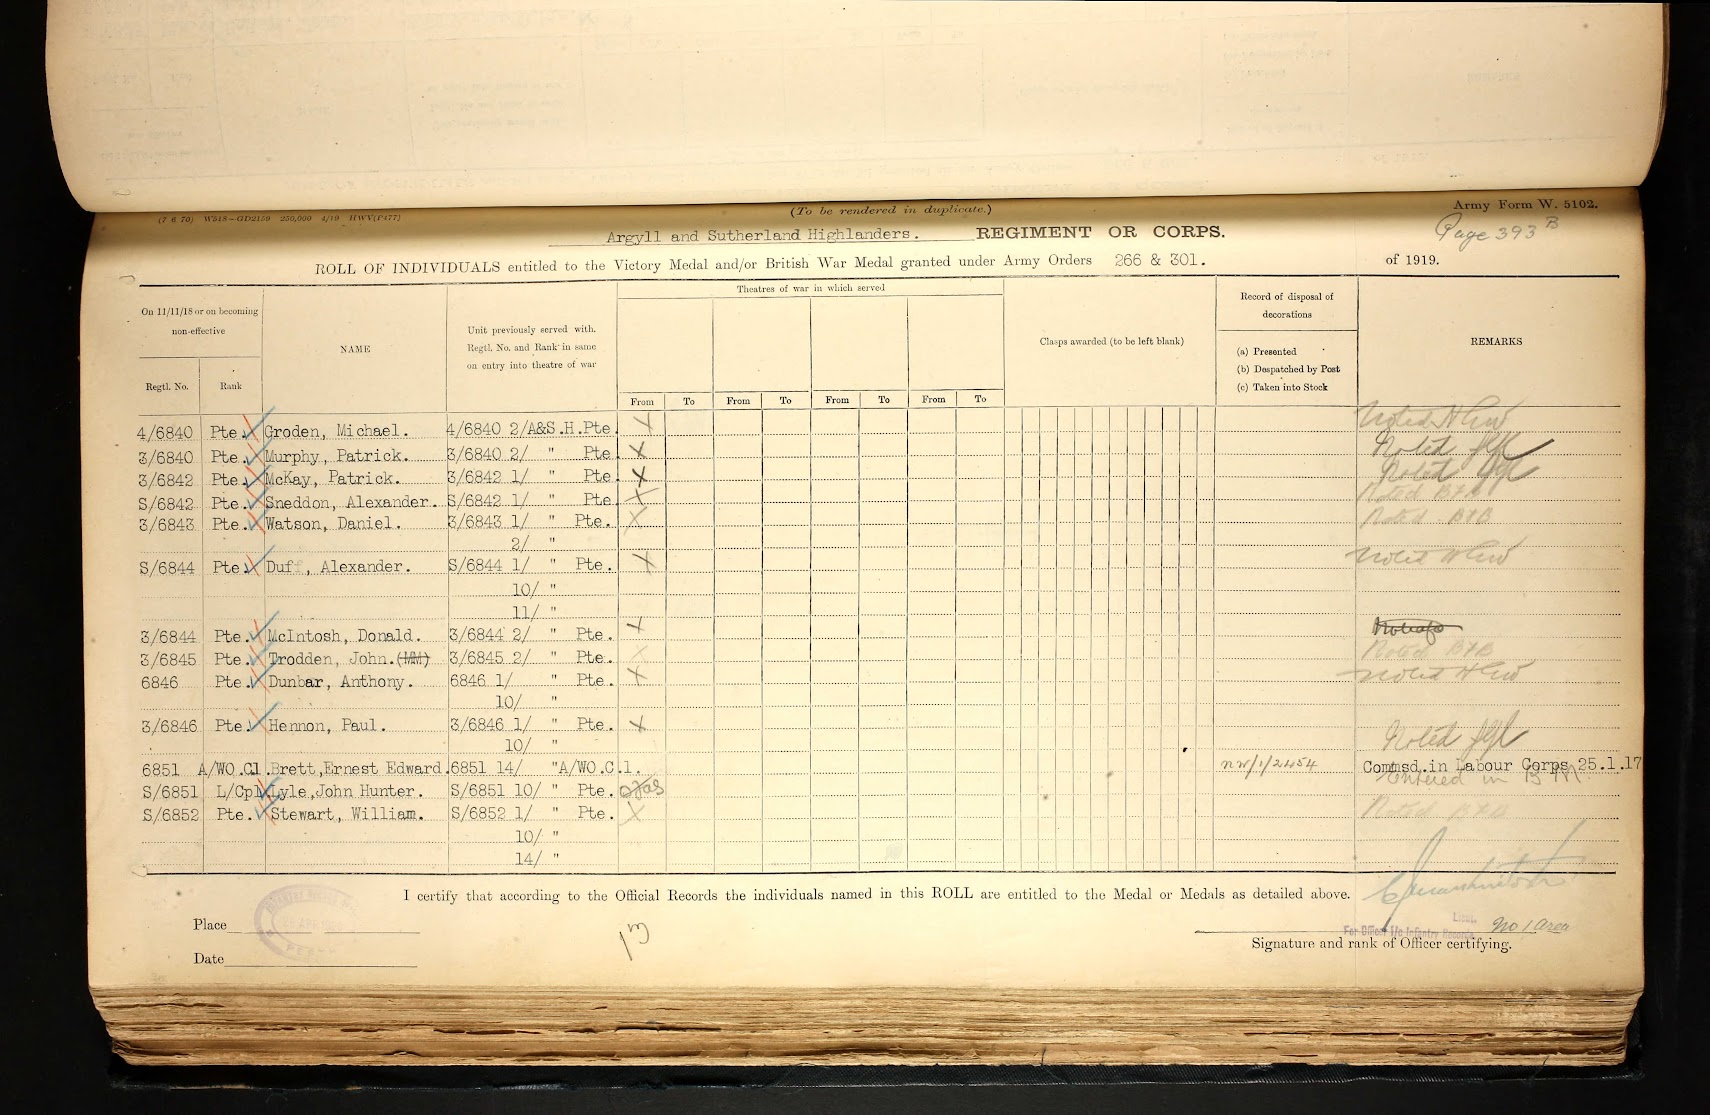 (7 6 70) W518—GD2159 250,000 4/19 HWV(P477)
(To be rendered in duplicate.)
Army Form W. 5102.
Page 393 B
Argyll and Sutherland Highlanders. REGIMENT OR CORPS.
ROLL OF INDIVIDUALS entitled to the Victory Medal and/or British War Medal granted under Army Orders 266 & 301. of 1919.
On 11/11/18 or on becoming non-effective
Regtl. No.
Rank
NAME
Unit previously served with.
Regtl. No. and Rank in same
on entry into theatre of war
Theatres of war in which served
From To From To From To From To
Clasps awarded (to be left blank)
Record of disposal of
decorations
(a) Presented
(b) Despatched by Post
(c) Taken into Stock
REMARKS
4/6840 Pte. Groden, Michael. 4/6840 2/A&S.H.Pte. X Noted
3/6840 Pte. Murphy, Patrick. 3/6840 2/ " Pte X Noted
3/6842 Pte. McKay, Patrick. 3/6842 1/ " Pte X Noted
S/6842 Pte. Sneddon, Alexander. S/6842 1/ " Pte. X Noted
3/6843 Pte. Watson, Daniel. 3/6843 1/ " Pte. X Noted
2/ "
S/6844 Pte. Duff, Alexander. S/6844 1/ " Pte. X Noted
10/ "
11/ "
3/6844 Pte. McIntosh, Donald. 3/6844 2/ " Pte. X
3/6845 Pte. Trodden, John.(MM) 3/6845 2/ " Pte. X Noted
6846 Pte. Dunbar, Anthony. 6846 1/ " Pte. X Noted
10/ "
3/6846 Pte. Hennon, Paul. 3/6846 1/ " Pte. X Noted
10/ "
6851 A/WO.Cl.1. Brett,Ernest Edward. 6851 14/ "A/WO.Cl.1. NW/1/2454 Commsd.in Labour Corps 25.1.17
Entered in B M
S/6851 L/Cpl. Lyle,John Hunter. S/6851 10/ " Pte.
S/6852 Pte. Stewart, William. S/6852 1/ " Pte. X Noted
10/ "
14/ "
I certify that according to the Official Records the individuals named in this ROLL are entitled to the Medal or Medals as detailed above.
Place
Date
PERTH
13
Lieut.
For Officer i/c Infantry Records, No 1 Area
Signature and rank of Officer certifying.